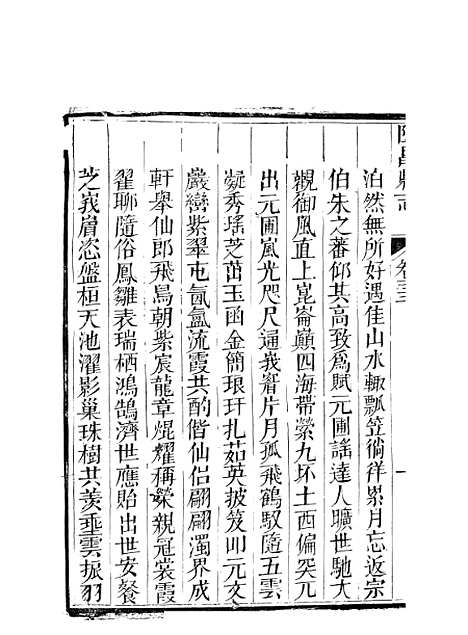 隆昌縣志
卷三三
泊然無所好遇佳山水輒瓢笠徜徉累月忘返宗
伯朱之蕃仰其高致爲賦元圃謠達人曠世馳大
觀御風直上崑崙巔四海帶縈九坏土西偏突元
出元圃嵐光咫尺逼我窗片月孤飛鶴馭隨五雲
凝秀瑤芝茁玉函金簡琅玕札茹英披笈叩元文
巖巒紫翠屯氤氳流霞共酌偕仙侶翩翩濁界成
軒舉仙郎飛舄朝紫宸龍章焜耀稱榮親冠裳霞
翟聊隨俗鳳雛表瑞栖鴻鵠濟世應貽出世安餐
芝峩眉恣盤桓天池濯影巢珠樹共羨垂雲振羽